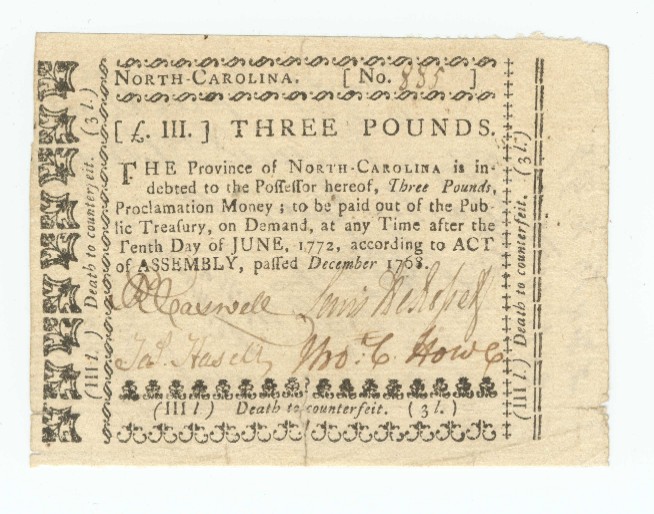 NORTH-CAROLINA. [ No. 885 ]
[ £. III. ] THREE POUNDS.
THE Province of NORTH-CAROLINA is in-
debted to the Poſſeſſor hereof, Three Pounds,
Proclamation Money ; to be paid out of the Pub-
lic Treasury, on Demand, at any Time after the
Tenth Day of JUNE, 1772, according to ACT
of ASSEMBLY, paſſed December 1768.
R Caswell Lewis
Jas. Hasell Tho: C. Howe
(III l.) Death to counterfeit. (3 l.)
(III l.) Death to counterfeit. (3 l.)
(III l.) Death to counterfeit. (3 l.)